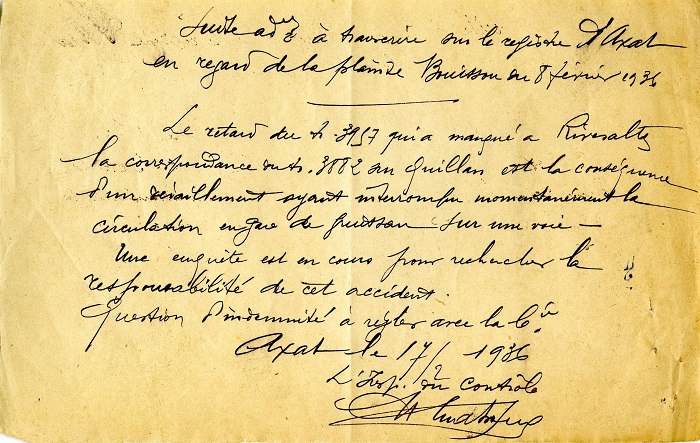 Suite à transcrire sur le registre d'Axat
en regard de la plainte Bouisson du 8 février 1936
Le retard du tr. 3957 qui a manqué à Rivesaltes
la correspondance du tr. 3882 sur Quillan est la conséquence
d'un déraillement ayant interrompu momentanément la
circulation en gare de Gruissan sur une voie —
Une enquête est en cours pour rechercher la
responsabilité de cet accident.
Question d'indemnité à régler avec la Cie
Axat le 17/2 1936
L'Insp. du contrôle